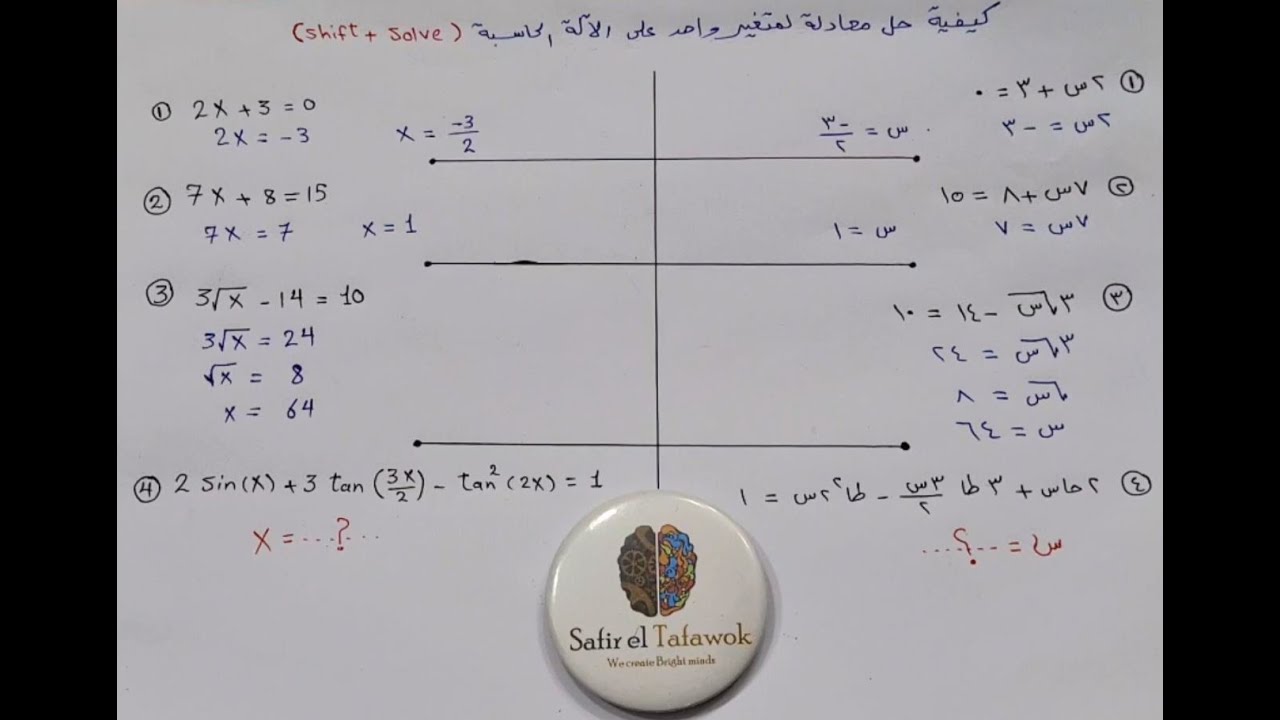 كيفية حل معادلة لمتغير واحد على الآلة الحاسبة (shift + solve)
① 2x + 3 = 0
2x = -3 x = -3/2
② 7x + 8 = 15
7x = 7 x = 1
③ 3√x - 14 = 10
3√x = 24
√x = 8
x = 64
④ 2 sin(x) + 3 tan (3x/2) - tan² (2x) = 1
x = ...?...
① ٢س + ٣ = ٠
٢س = -٣ س = -٣/٢
② ٧س + ٨ = ١٥
٧س = ٧ س = ١
③ ٣√س - ١٤ = ١٠
٣√س = ٢٤
√س = ٨
س = ٦٤
④ ٢ حاس + ٣ طا ٣س/٢ - طا٢ ٢س = ١
س = ...؟...
Safir el Tafawok
We create Bright minds